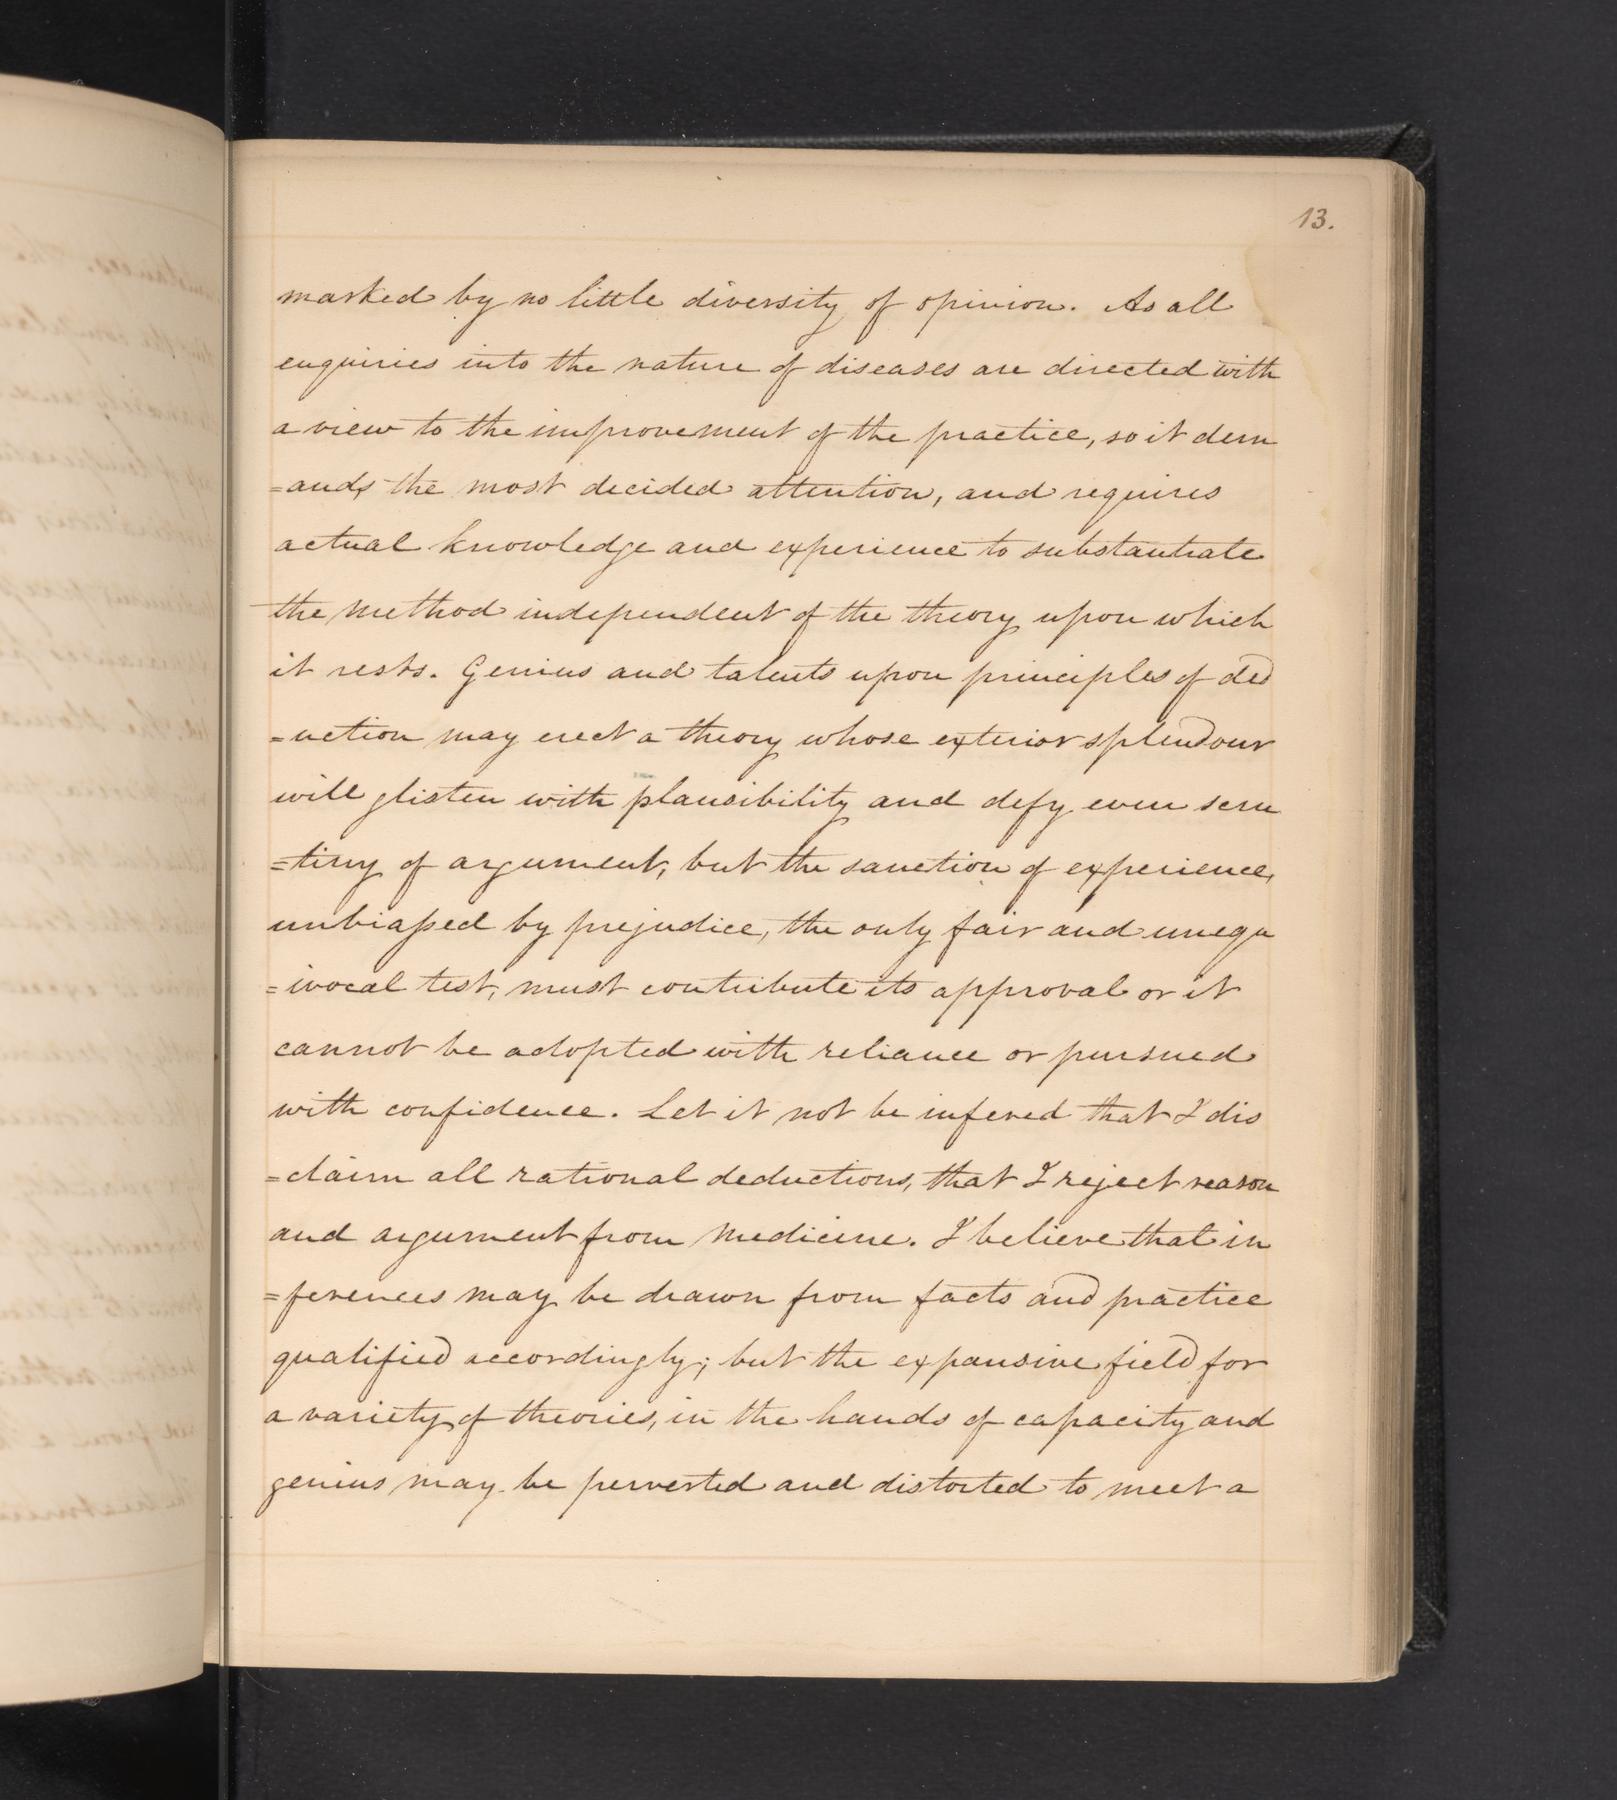 13.
marked by no little diversity of opinion. As all
enquiries into the nature of diseases are directed with
a view to the improvement of the practice, so it dem
=ands the most decided attention, and requires
actual knowledge and experience to substantiate
the method independent of the theory upon which
it rests. Genius and talents upon principles of ded
=uction may erect a theory whose exterior splendour
will glisten with plausibility and defy even scru
=tiny of argument, but the sanction of experience,
unbiassed by prejudice, the only fair and unequ
=ivocal test, must contribute its approval or it
cannot be adopted with reliance or pursued
with confidence. Let it not be infered that I dis
=claim all rational deductions, that I reject reason
and argument from medicine. I believe that in
=ferences may be drawn from facts and practice
qualified accordingly; but the expansive field for
a variety of theories, in the hands of capacity and
genius may be perverted and distorted to meet a